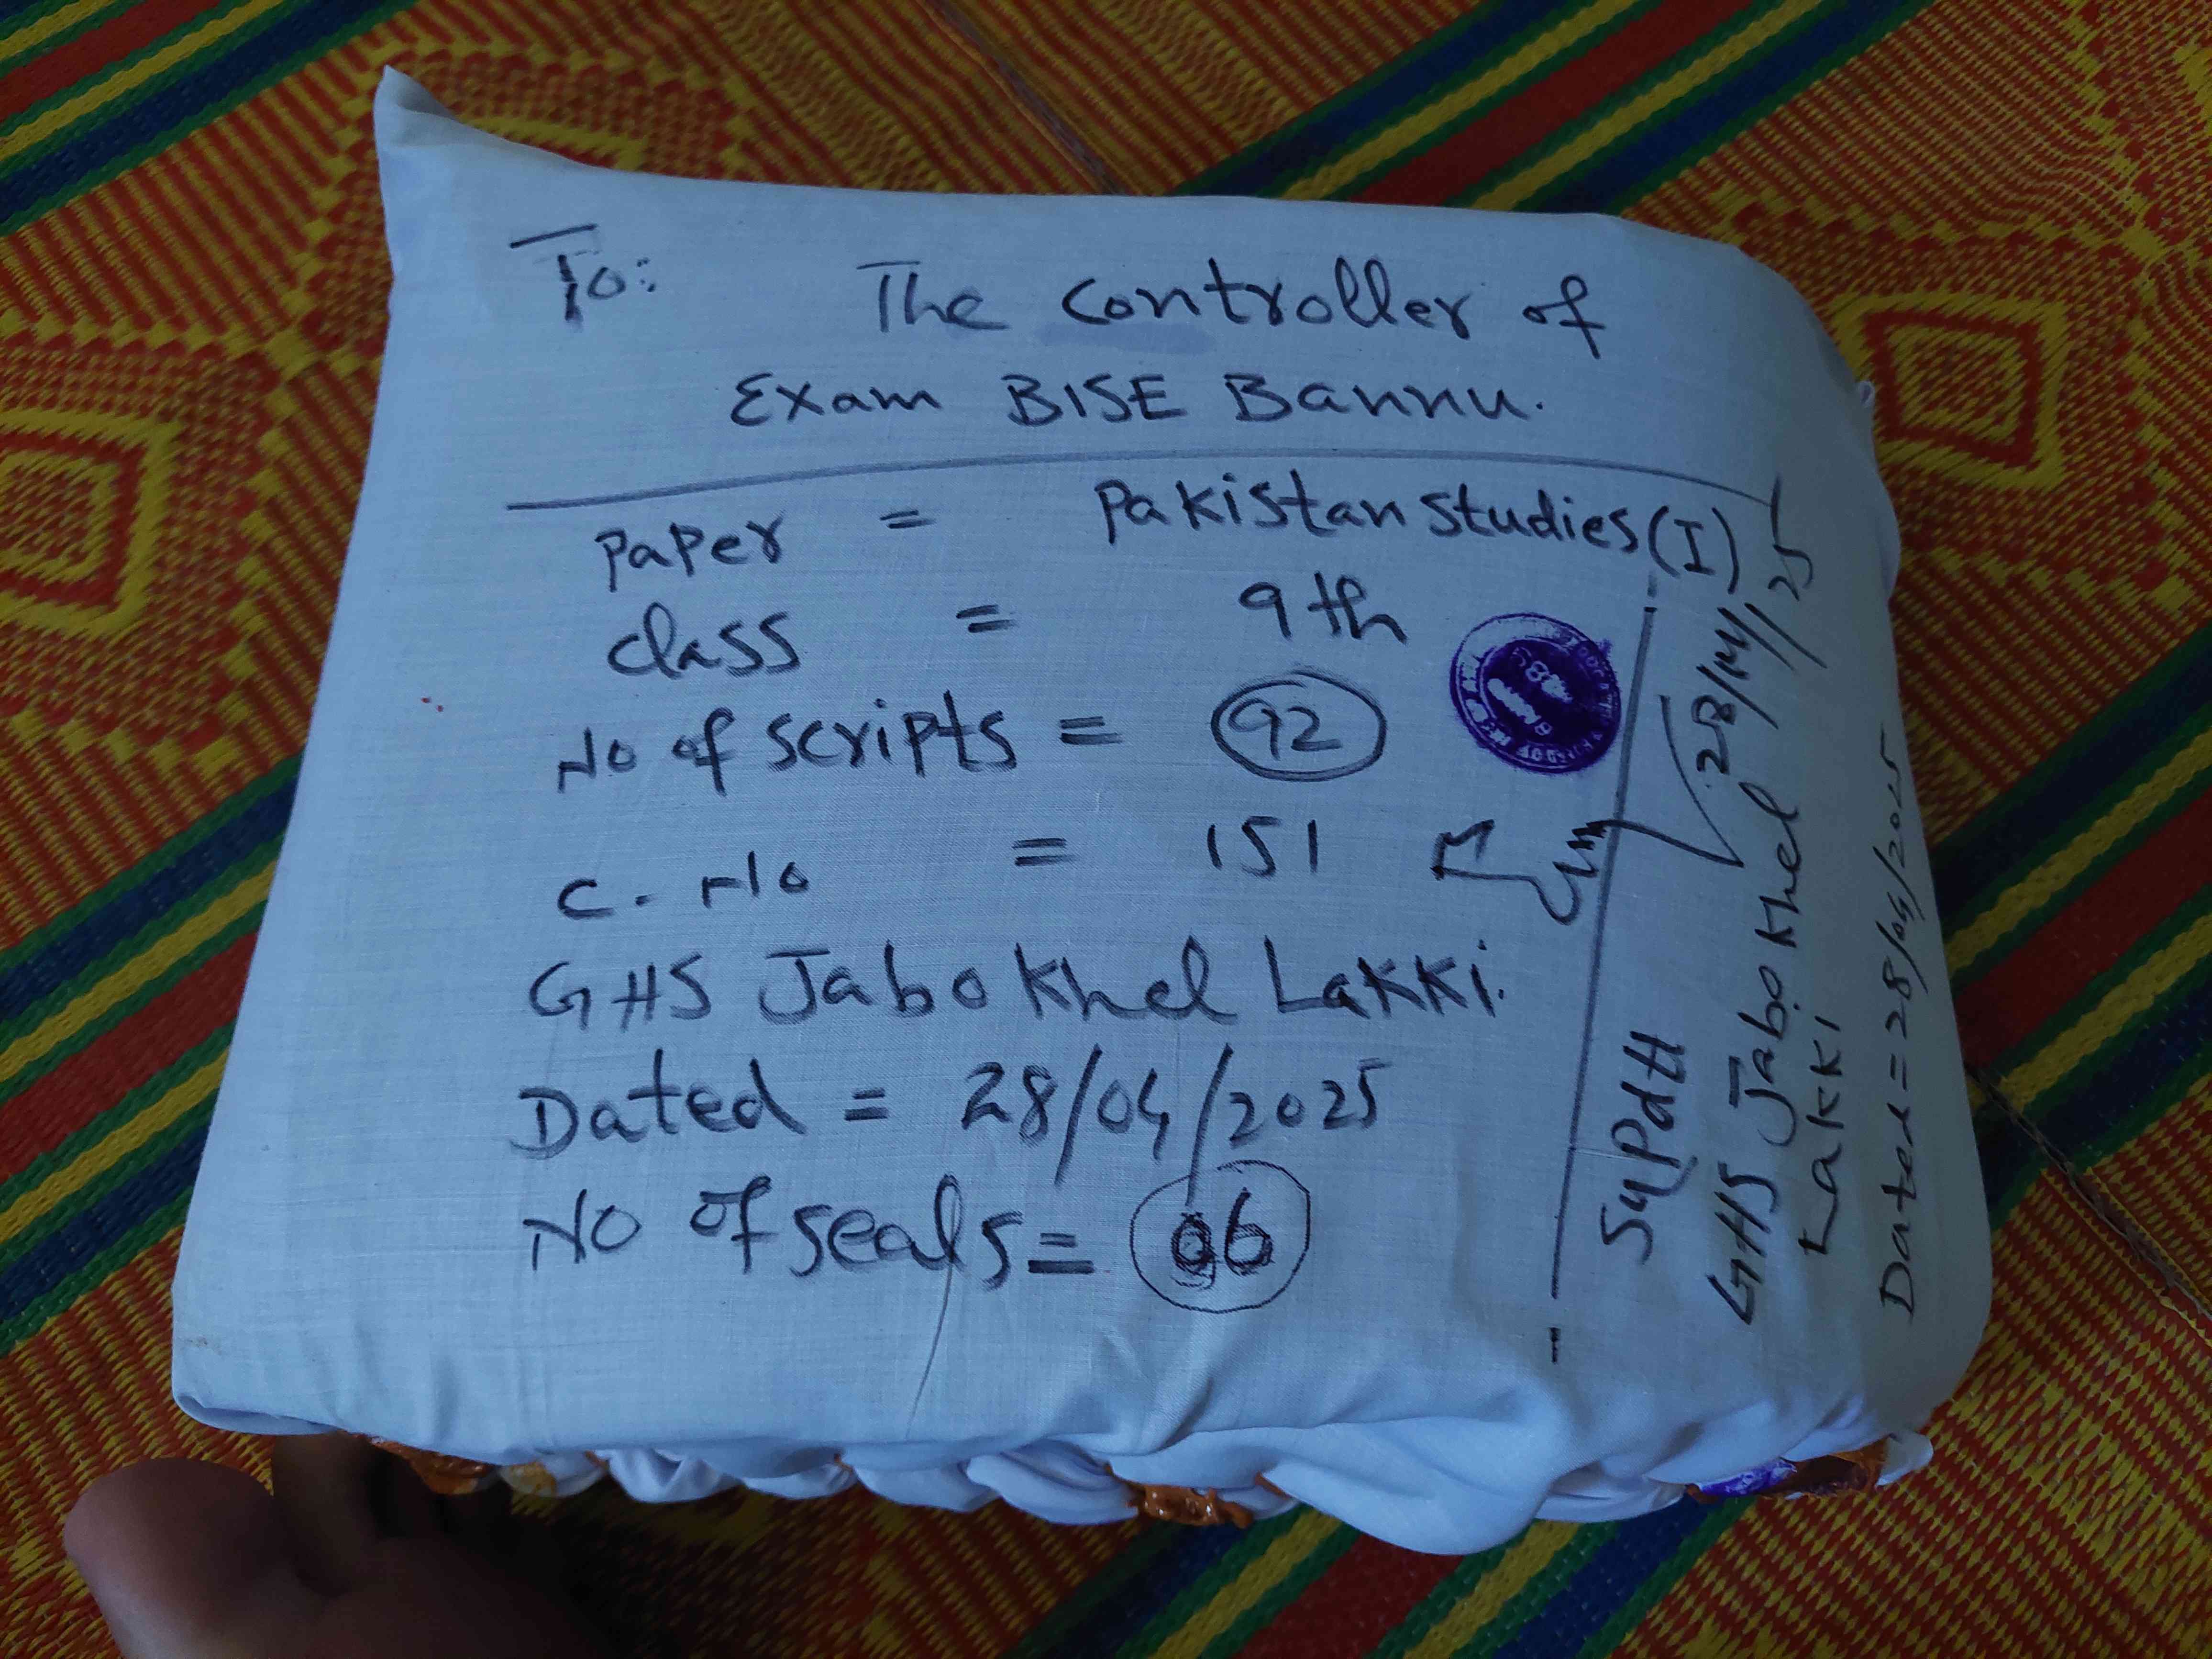 To: The Controller of
Exam BISE Bannu.
Paper = Pakistan Studies (I)
class = 9th
No of scripts = 92
C. No = 151
GHS Jabo Khel Lakki.
Dated = 28/04/2025
No of seals = 06
28/04/25
SuPdtt
GHS Jabo Khel
Lakki
Dated = 28/04/2025